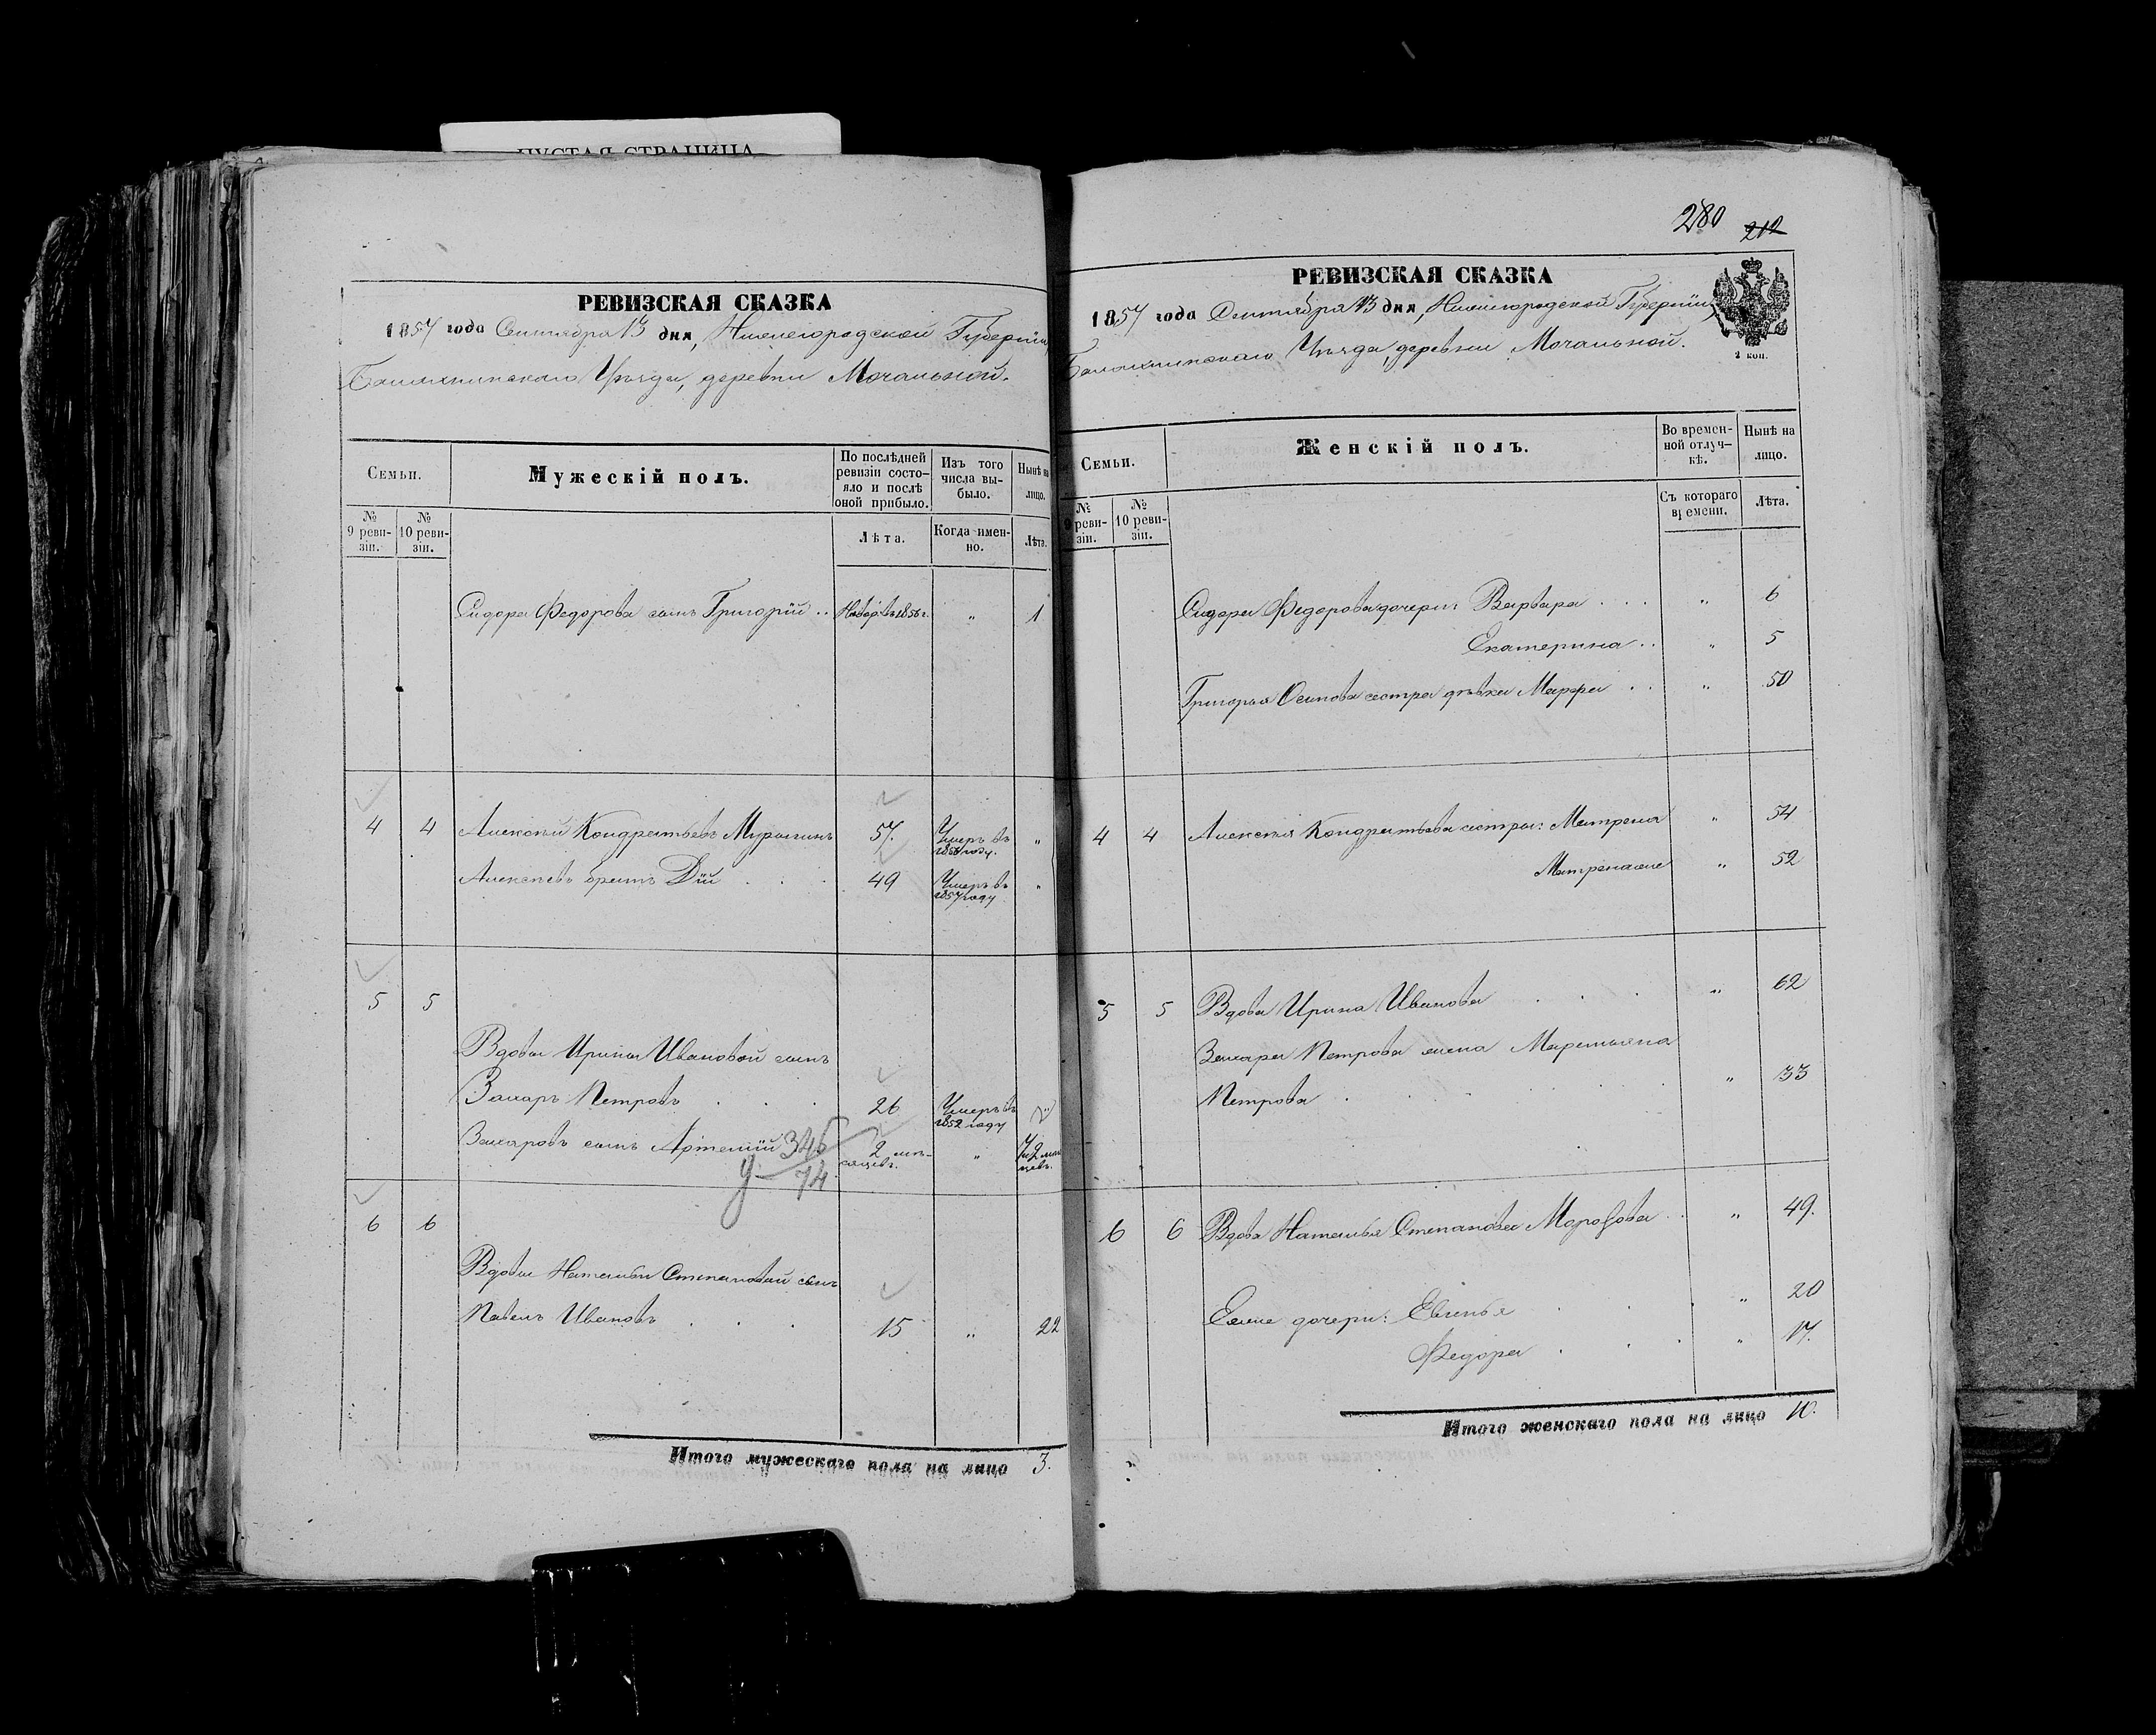 ПУСТАЯ СТРАНИЦА
РЕВИЗСКАЯ СКАЗКА
1857 года Сентября 13 дня, Нижегородской Губерніи,
Балахнинскаго Уѣзда, деревни Мочальной.
Семьи.
Мужескій полъ.
По послѣдней ревизіи состо-
яло и послѣ оной прибыло.
Изъ того числа вы-
было.
Нынѣ на лицо.
№ 9 реви-
зіи.
№ 10 реви-
зіи.
Лѣта.
Когда имен-
но.
Лѣта.
Сидора Федорова сынъ Григорій .. 1856 г. " 1
4 4 Алексѣй Кондратьевъ Мурыгинъ 57. Умеръ въ 1856 году. "
Алексѣевъ братъ Дій . . . 49 Умеръ въ 1857 году "
5 5
Вдовы Ирины Ивановой сынъ
Захаръ Петровъ . . . 26 Умеръ въ 1852 году "
Захаровъ сынъ Артемій 2 мѣ-
сяцевъ. "
345
74
6 6
Вдовы Натальи Степановой сынъ
Павелъ Ивановъ . . . 15 " 22
Итого мужескаго пола на лицо 3.
280 212
РЕВИЗСКАЯ СКАЗКА
1857 года Сентября 13 дня, Нижегородской Губерніи,
Балахнинскаго Уѣзда, деревни Мочальной.
2 коп.
Семьи.
Женскій полъ.
Во времен-
ной отлуч-
кѣ.
Нынѣ на лицо.
№ 9 реви-
зіи.
№ 10 реви-
зіи.
Съ котораго времени.
Лѣта.
Сидора Федорова дочери: Варвара . . . " 6
Екатерина .. " 5
Григорья Осипова сестра дѣвка Марфа . . " 50
4 4 Алексѣя Кондратьева сестры: Матрена " 54
Матрена же " 52
5 5 Вдова Ирина Иванова . . . " 62
Захара Петрова жена Маремьяна
Петрова . . . . " 33
6 6 Вдова Наталья Степанова Морозова . " 49.
Ея же дочери: Евгенья . . . " 20
Федора . . . " 17.
Итого женскаго пола на лицо 10.